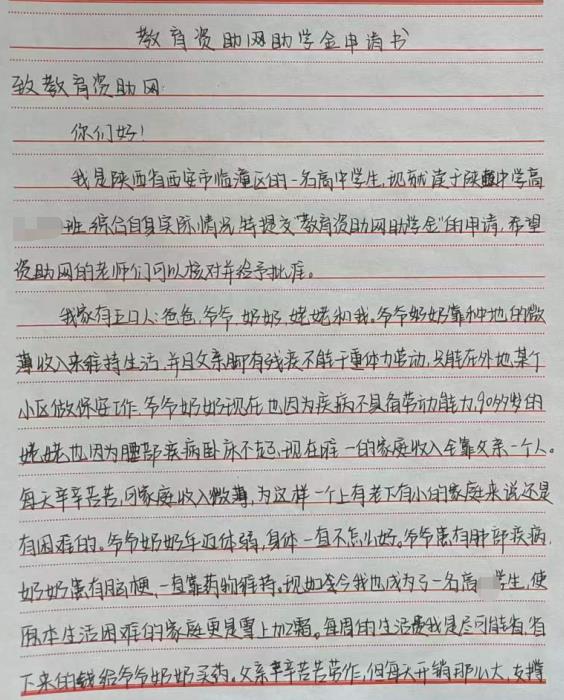 教育资助网助学金申请书
致教育资助网
你们好!
我是陕西省西安市临潼区的一名高中学生,现就读于陕中学高
班,综合自身实际情况,特提交“教育资助网助学金”的申请,希望
资助网的老师们可以核对并给予批准。
我家有五口人:爸爸,爷爷,奶奶,姥姥和我。爷爷奶奶靠种地的微
薄收入来维持生活,并且父亲脚有残疾不能干重体力劳动,只能在外地某个
小区做保安工作,爷爷奶奶现在也因为疾病不具备劳动能力,90多岁的
姥姥也因为腰部疾病卧床不起,现在唯一的家庭收入全靠父亲一个人。
每天辛辛苦苦,可家庭收入微薄,为这样一个上有老下有小的家庭来说还是
有困难的。爷爷奶奶年迈体弱,身体一直不怎么好。爷爷患有肺部疾病,
奶奶患有脑梗,一直靠药物维持。现如今我也成为了一名高学生,使
原本生活困难的家庭更是雪上加霜。每周的生活费我是尽可能省,省
下来的钱给爷爷奶奶买药。父亲辛辛苦苦劳作,但每天开销那么大,支撑